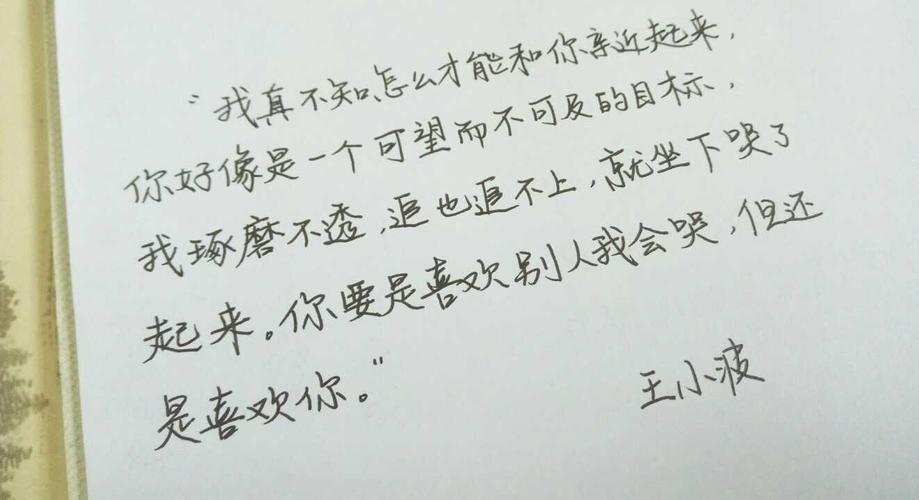 “我真不知怎么才能和你亲近起来，
你好像是一个可望而不可及的目标，
我琢磨不透，追也追不上，就坐下哭了
起来。你要是喜欢别人我会哭，但还
是喜欢你。”
王小波